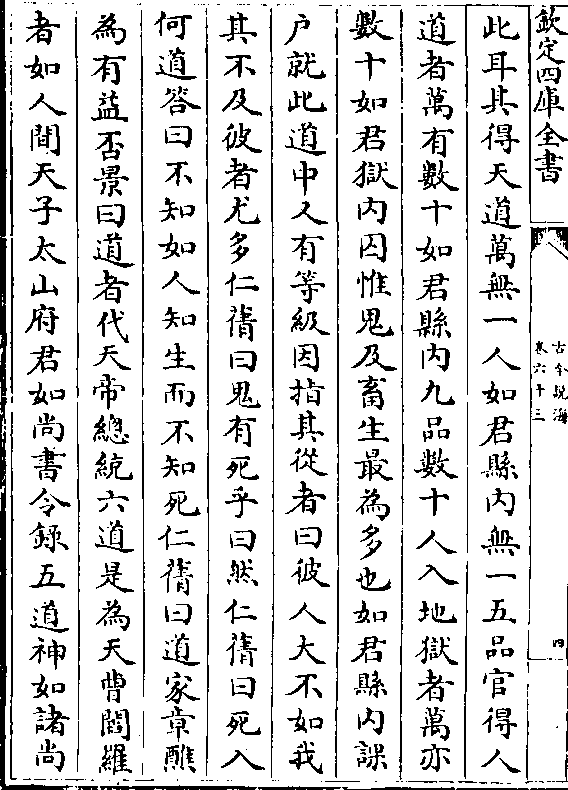 欽定四庫全書
古今説海
卷六十三
四
此耳其得天道萬無一人如君縣内無一五品官得人
道者萬有數十如君縣内九品數十人入地獄者萬亦
數十如君獄内囚惟鬼及畜生最為多也如君縣内課
户就此道中又有等級因指其從者曰彼人大不如我
其不及彼者尤多仁蒨曰鬼有死乎曰然仁蒨曰死入
何道答曰不知如人知生而不知死仁蒨曰道家章醮
為有益否景曰道者代天帝總統六道是為天曹閻羅
者如人間天子太山府君如尚書令錄五道神如諸尚